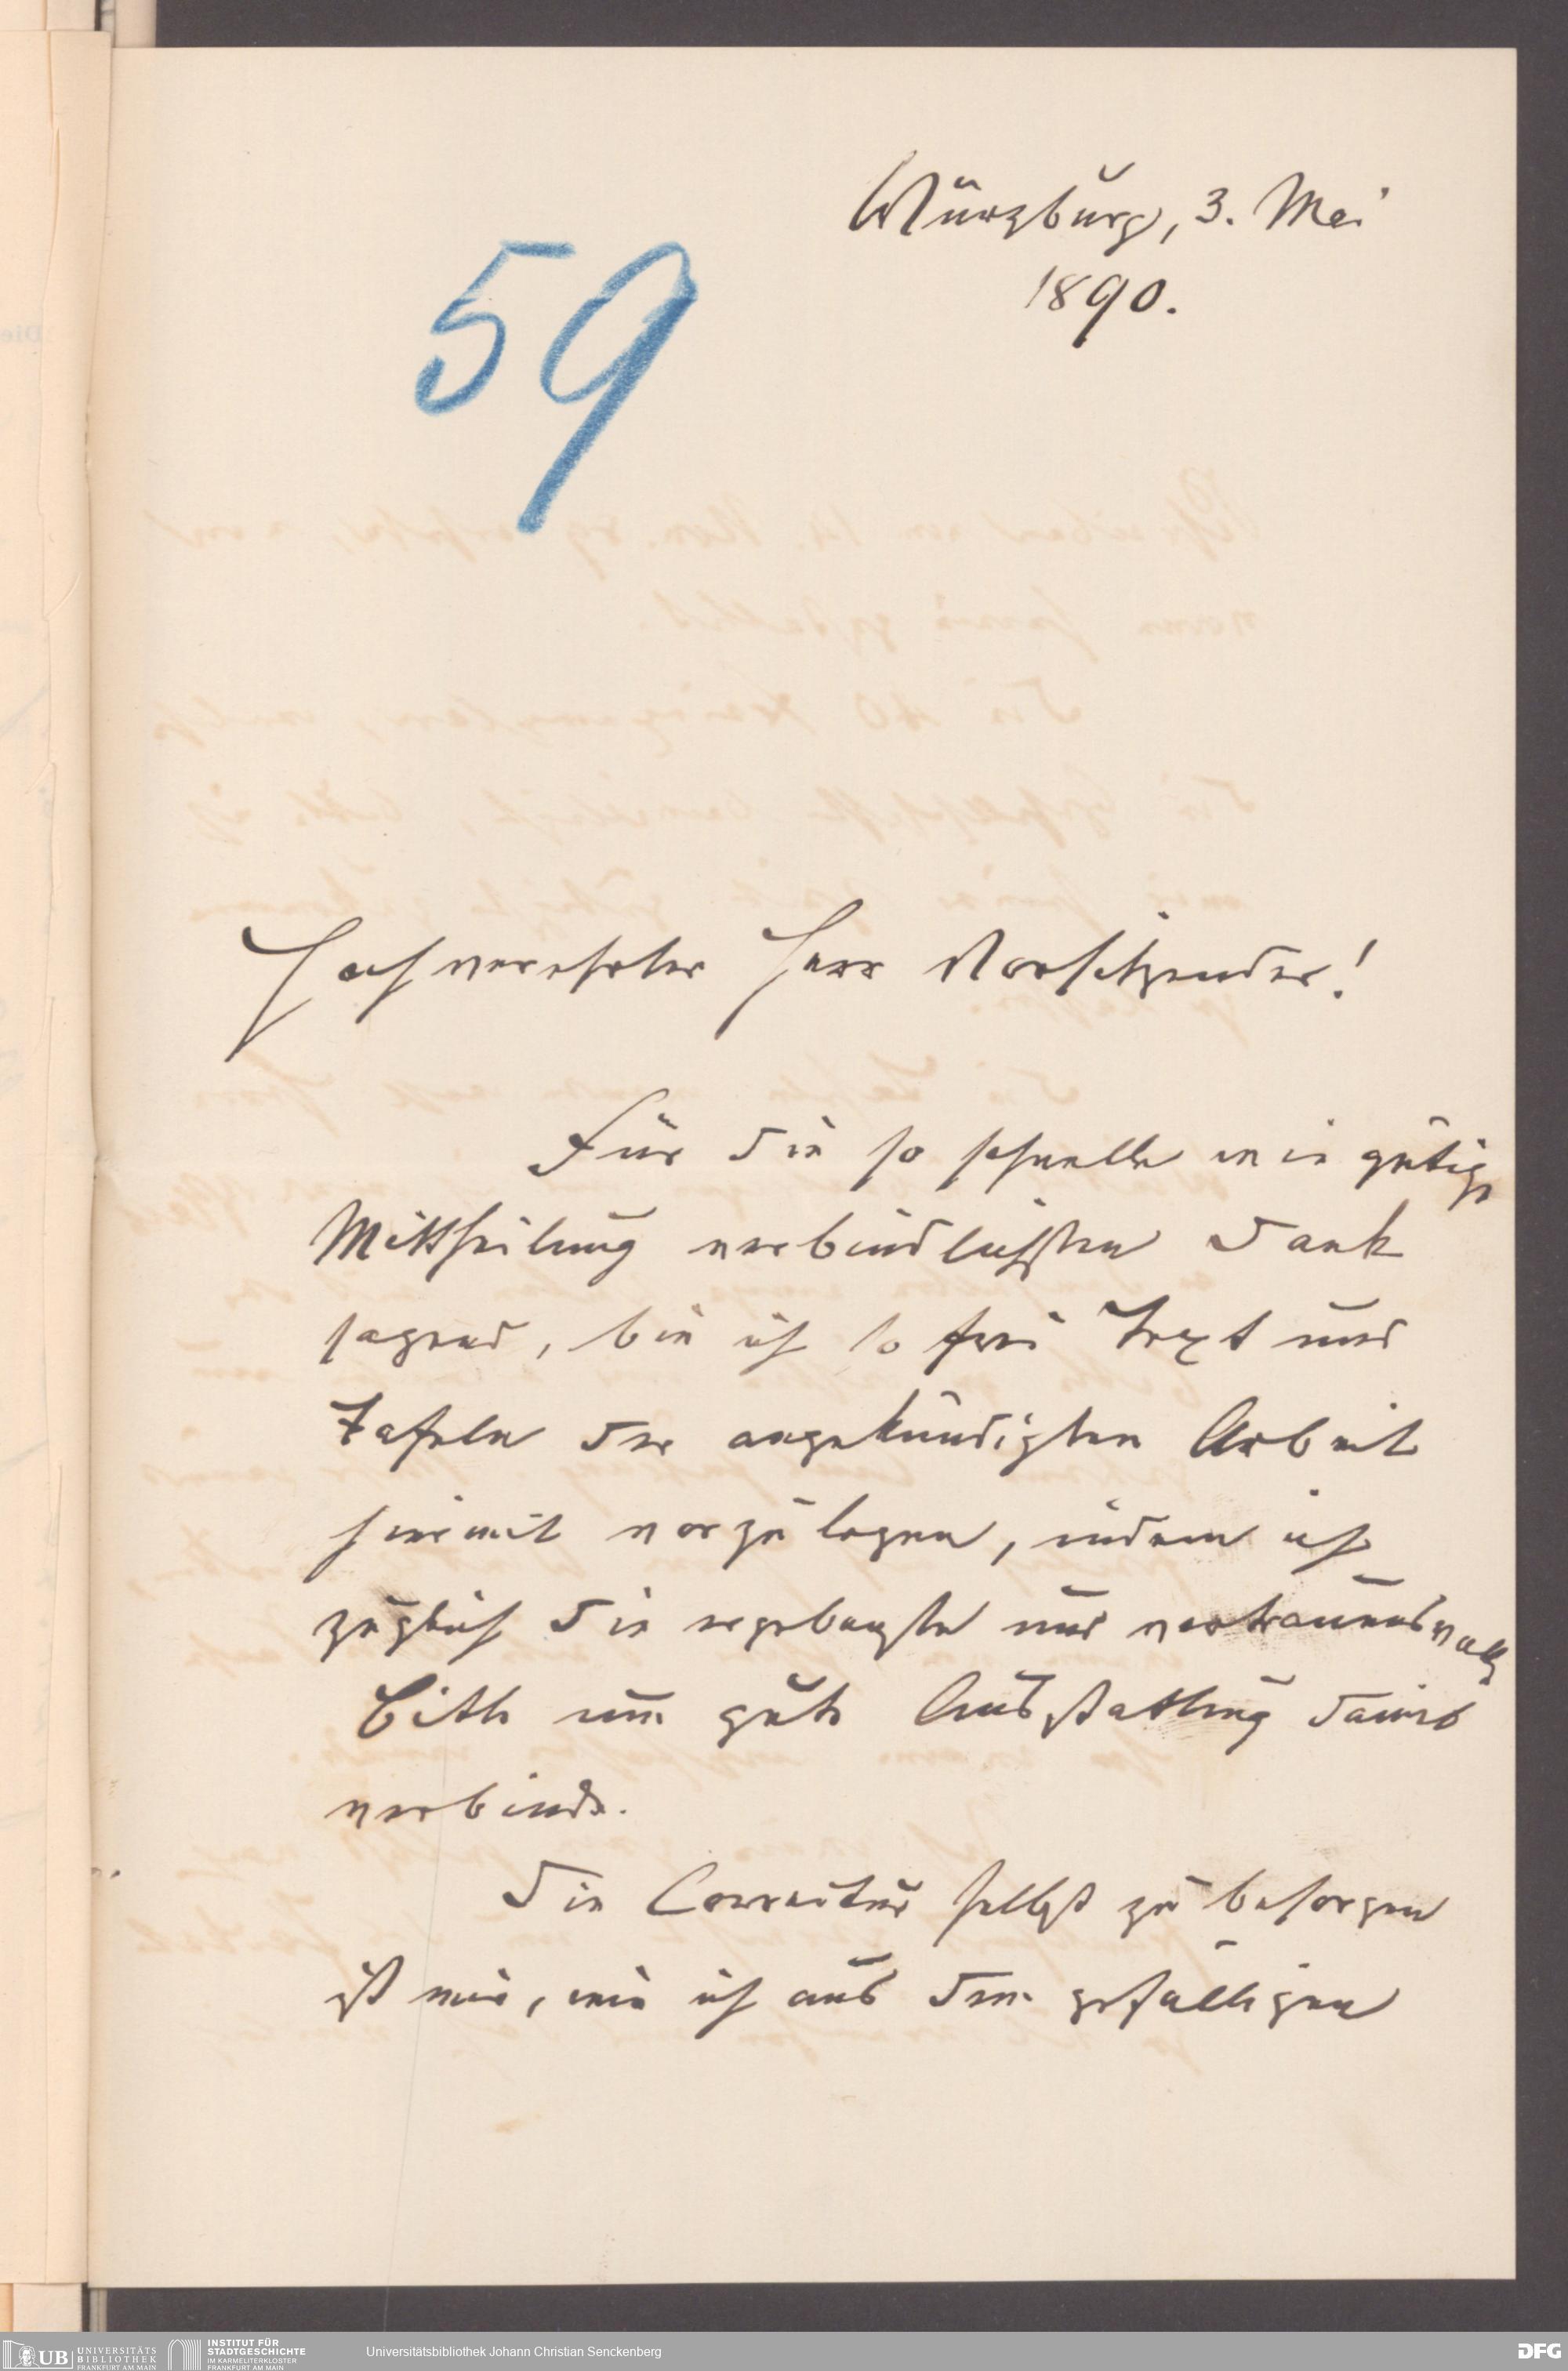 Würzburg, 3. Mai
1890.
59
Hochverehrter Herr Vorsitzender!
Für die so schnelle wie gütige
Mittheilung verbindlichsten Dank
sagend, bin ich so frei Text und
Tafeln der angekündigten Arbeit
hiermit vorzulegen, indem ich
zugleich die ergebenste und vertrauensvolle
Bitte um gute Ausstattung damit
verbinde.
Die Correctur selbst zu besorgen
ist mir, wie ich aus dem gefälligen
UB UNIVERSITÄTS
BIBLIOTHEK
FRANKFURT AM MAIN
INSTITUT FÜR
STADTGESCHICHTE
IM KARMELITERKLOSTER
FRANKFURT AM MAIN
Universitätsbibliothek Johann Christian Senckenberg
DFG